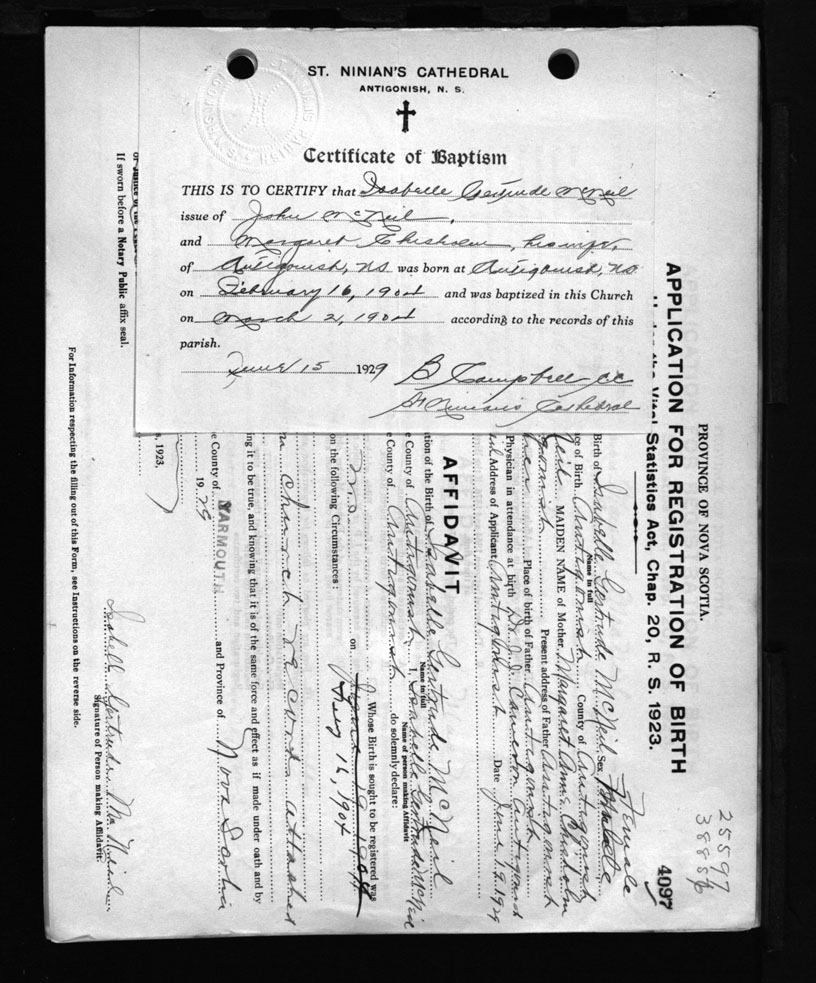 ST. NINIAN'S CATHEDRAL
ANTIGONISH, N. S.
Certificate of Baptism
THIS IS TO CERTIFY that Isabelle Gertrude McNeil
issue of John McNeil,
and Margaret Chisholm, his wife,
of Antigonish, NS was born at Antigonish, NS.
on February 16, 1904 and was baptized in this Church
on March 2, 1904 according to the records of this
parish.
June 15 1929 B Campbell CC
St Ninian's Cathedral
25597
4097
PROVINCE OF NOVA SCOTIA.
APPLICATION FOR REGISTRATION OF BIRTH
Under the Vital Statistics Act, Chap. 20, R. S. 1923.
Birth of Isabelle Gertrude McNeil Sex Female
Name in full
ce of Birth Antigonish County of Antigonish
Neil MAIDEN NAME of Mother Margaret Anne Chisholm
Present address of Father Antigonish
Place of birth of Father Antigonish
Physician in attendance at birth Dr. Cameron Antigonish
Address of Applicant Antigonish Date June 19, 1929
AFFIDAVIT
tion of the Birth of Isabelle Gertrude McNeil
Name in full
e County of Antigonish I, Isabelle Gertrude McNeil
Name of person making Affidavit
e County of Antigonish do solemnly declare:
Whose Birth is sought to be registered was
N.S. on Feby 16, 1904
on the following Circumstances:
church records attached
ing it to be true, and knowing that it is of the same force and effect as if made under oath and by
e County of YARMOUTH and Province of Nova Scotia
1929
, 1923,
Isabell Gertrude McNeil
Signature of Person making Affidavit
or Justice of the Peace
If sworn before a Notary Public affix seal.
For Information respecting the filling out of this Form, see Instructions on the reverse side.